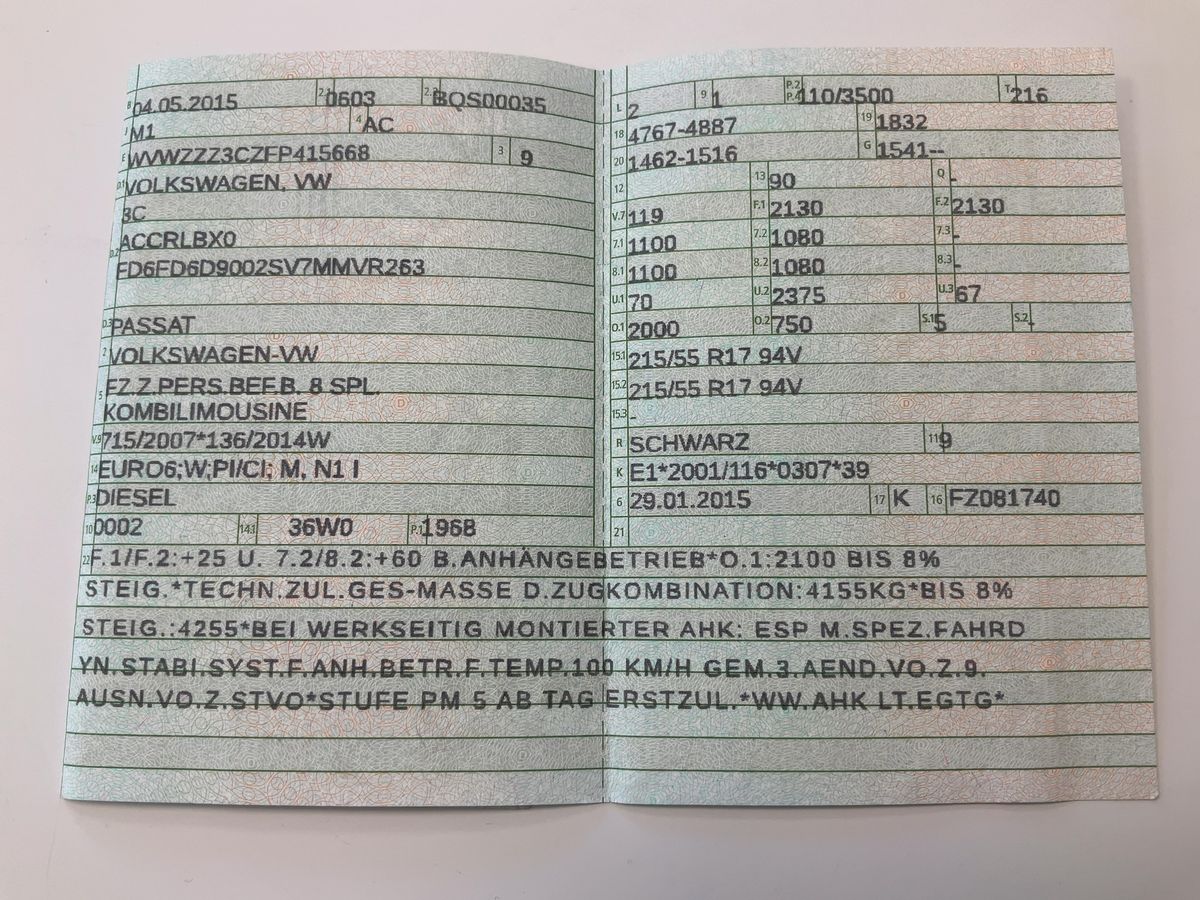 B 04.05.2015 2.1 0603 2.2 BQS00035
J M1 4 AC
E WVWZZZ3CZFP415668 3 9
D.1 VOLKSWAGEN, VW
3C
D.2 ACCRLBX0
FD6FD6D9002SV7MMVR263
D.3 PASSAT
2 VOLKSWAGEN-VW
5 FZ.Z.PERS.BEF.B. 8 SPL.
KOMBILIMOUSINE
V.9 715/2007*136/2014W
14 EURO6;W;PI/CI; M, N1 I
P.3 DIESEL
10 0002 14.1 36W0 P.1 1968
L 2 9 1 P.2 P.4 110/3500 T 216
18 4767-4887 19 1832
20 1462-1516 G 1541--
12 13 90 Q -
V.7 119 F.1 2130 F.2 2130
7.1 1100 7.2 1080 7.3 -
8.1 1100 8.2 1080 8.3 -
U.1 70 U.2 2375 U.3 67
O.1 2000 O.2 750 S.1 5 S.2 -
15.1 215/55 R17 94V
15.2 215/55 R17 94V
15.3 -
R SCHWARZ 11 9
K E1*2001/116*0307*39
6 29.01.2015 17 K 16 FZ081740
21
22 F.1/F.2:+25 U. 7.2/8.2:+60 B.ANHÄNGEBETRIEB*O.1:2100 BIS 8%
STEIG.*TECHN.ZUL.GES-MASSE D.ZUGKOMBINATION:4155KG*BIS 8%
STEIG.:4255*BEI WERKSEITIG MONTIERTER AHK: ESP M.SPEZ.FAHRD
YN.STABI.SYST.F.ANH.BETR.F.TEMP.100 KM/H GEM.3.AEND.VO.Z.9.
AUSN.VO.Z.STVO*STUFE PM 5 AB TAG ERSTZUL.*WW.AHK LT.EGTG*